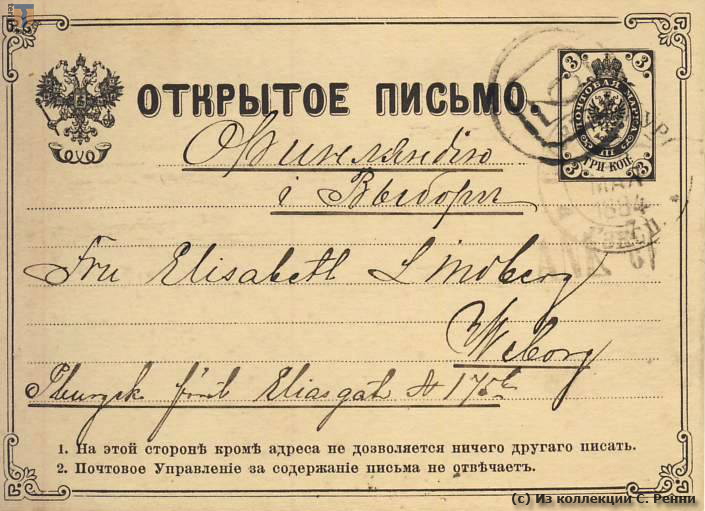 ОТКРЫТОЕ ПИСЬМО.
3 3
ПОЧТОВАЯ МАРКА
ТРИ КОП.
3 3
МАЯ
1884
Финляндію
і Выборгъ
Fru Elisabeth Lindberg
Wiborg
1. На этой сторонѣ кромѣ адреса не дозволяется ничего другаго писать.
2. Почтовое Управленіе за содержаніе письма не отвѣчаетъ.
(с) Из коллекции С. Ренни